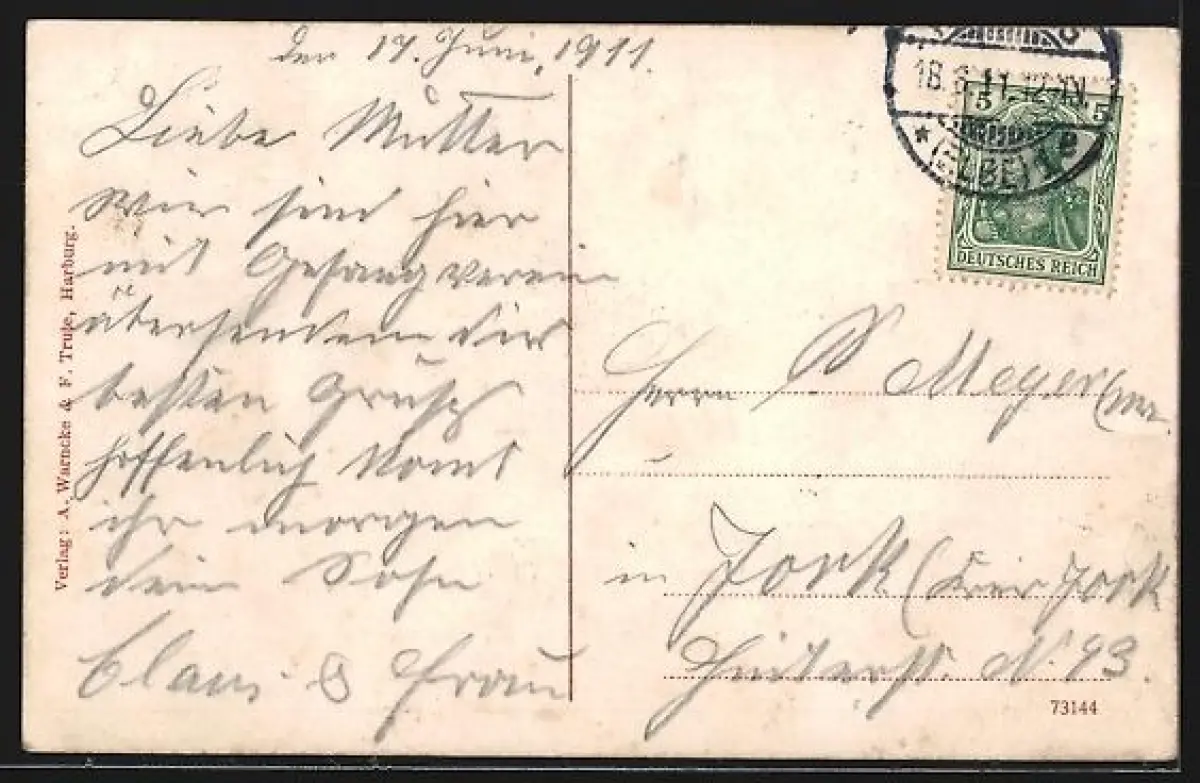 den 17. Juni, 1911.
Liebe Mutter
wir sind hier
mit Gesangverein
übersenden dir
besten Grusz
hoffenlich komt
ihr morgen
dein Sohn
Claus & Frau
Verlag: A. Warncke & F. Truße, Harburg.
18.6.11.12-1N.
* (ELBE) 1 e
5 5
DEUTSCHES REICH
Herrn P Meyer
in Jork (Kreis Jork
Hinterst. N. 93.
73144